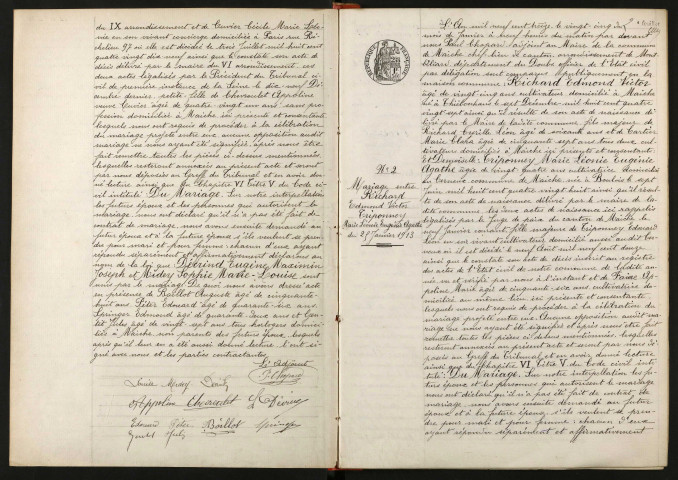 du IX arrondissement et de Cuvier Cécile Marie
en son vivant concierge domiciliée à Paris rue
97 où elle est décédée le trois Juillet mil huit cent
quatre vingt dix neuf ainsi que le constate son acte de
décès délivré par le maire du VI arrondissement, ces
deux actes légalisés par le Président du Tribunal ci-
vil de première instance de la Seine le dix neuf Dé-
cembre dernier, petit-fils de Chavoutet Appoline
veuve Cuvier âgée de quatre vingt un ans, sans pro-
fession domiciliée à Maiche ici présente et consentante
lesquels nous ont requis de procéder à la célébration
du mariage projeté entre eux aucune opposition audit
mariage ne nous ayant été signifiée, après nous être
fait remettre toutes les pièces ci-dessus mentionnées
lesquelles resteront annexées au présent acte et seront
par nous déposées au Greffe du Tribunal et en avoir don-
né lecture ainsi que du Chapitre VI Titre V du Code ci-
vil intitulé : Du Mariage. Sur notre interpellation
les futurs époux et les personnes qui autorisent le
mariage, nous ont déclaré qu'il n'a pas été fait de
contrat de mariage, nous avons ensuite demandé au
futur époux et à la future épouse s'ils veulent se pren-
dre pour mari et pour femme : chacun d'eux ayant
répondu séparément et affirmativement déclarons au
nom de la loi que Eugène Maximin
Joseph et Sophie Marie-Louise sont
unis par le mariage De quoi nous avons dressé acte
en présence de Baillot Auguste âgé de cinquante-
huit ans Edouard âgé de quarante-six ans,
Springer Edmond âgé de quarante-deux ans et
Jules âgé de vingt-sept ans tous horlogers domici-
liés à Maiche non parents des futurs époux, lesquels
après qu'il leur en a été aussi donné lecture l'ont si-
gné avec nous et les parties contractantes.
L'adjoint
Baillot Springer
N° 2
Mariage entre
Richard
Edmond Victor
Triponney
Marie Léonie Eugénie Agathe
du 25 Janvier 1913
L'An mil neuf cent treize le vingt cinq du
mois de Janvier à neuf heures du matin par devant
nous Paul Chopard adjoint au Maire de la commune
de Maiche chef lieu de canton arrondissement de Mont
béliard département du Doubs officier de l'Etat civil
par délégation sont comparus publiquement en la
maison commune Richard Edmond Victor
âgé de vingt cinq ans cultivateur domicilié à Maiche
né à Thiébouhans le sept Décembre mil huit cent quatre
vingt sept ainsi qu'il résulte de son acte de naissance dé-
livré par le Maire de la dite commune, fils majeur de
Richard Léon âgé de soixante ans et de Cartier
Marie Clara âgée de cinquante sept ans tous deux cul-
tivateurs domiciliés à Maiche ici présents et consentants :
et Demoiselle Triponney Marie Léonie Eugénie
Agathe âgée de vingt quatre ans cultivatrice domiciliée
en dernière commune de Maiche née à le sept
Juin mil huit cent quatre vingt huit ainsi qu'il résul-
te de son acte de naissance délivré par le maire de la-
dite commune, les deux actes de naissance ici rappelés
légalisés par le Juge de paix du canton de Maiche le
neuf Janvier courant fille majeure de Triponney Edouard
Léon en son vivant cultivateur domicilié audit
où il est décédé le neuf Août mil neuf cent douze
ainsi que le constate son acte de décès inscrit au registre
des actes de l'Etat civil de cette commune de la dite an-
née vu et vérifié par nous à l'instant et de
Marie âgée de cinquante-six ans cultivatrice do-
miciliée au même lieu ici présente et consentante :
lesquels nous ont requis de procéder à la célébration du
mariage projeté entre eux. Aucune opposition audit ma-
riage ne nous ayant été signifiée et après nous être fait
remettre toutes les pièces ci-dessus mentionnées, lesquelles
resteront annexées au présent acte et seront par nous dé-
posées au Greffe du Tribunal et en avoir donné lecture
ainsi que du Chapitre VI Titre V du Code civil inti-
tulé : Du Mariage. Sur notre interpellation les fu-
turs époux et les personnes qui autorisent le mariage
nous ont déclaré qu'il n'a pas été fait de contrat de
mariage, nous avons ensuite demandé au futur
époux et à la future épouse s'ils veulent se pren-
dre pour mari et pour femme : chacun d'eux
ayant répondu séparément et affirmativement